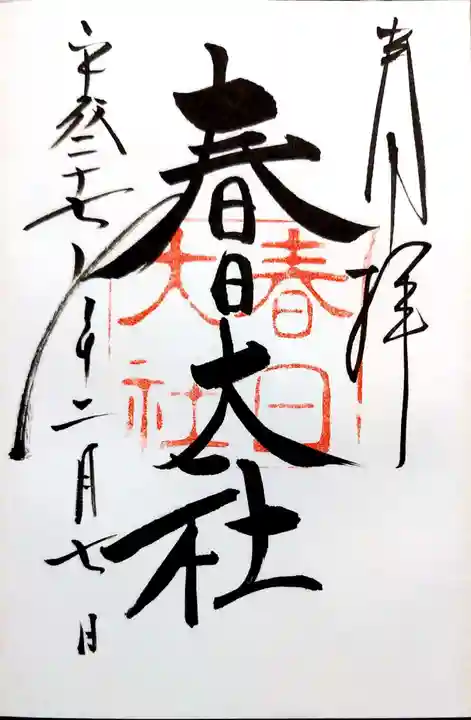 奉拝
春日大社
春日
大社
平成二十七年二月七日